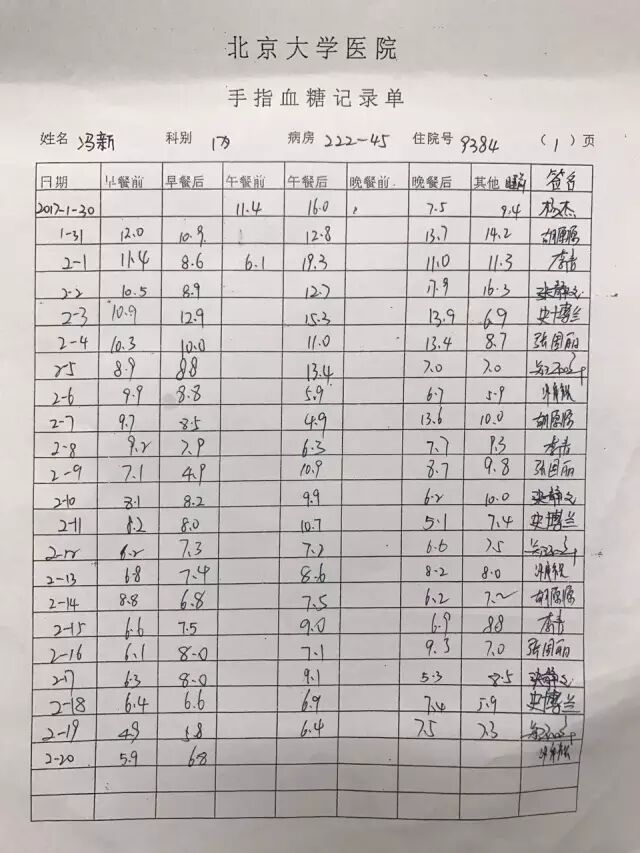 北京大学医院
手指血糖记录单
姓名 冯新 科别 病房 222-45 住院号 9384 (1)页
日期 早餐前 早餐后 午餐前 午餐后 晚餐前 晚餐后 其他 睡前 签名
2017-1-30 11.4 16.0 7.5 9.4 杨杰
1-31 12.0 10.9 12.8 13.7 14.2 胡愿愿
2-1 11.4 8.6 6.1 19.3 11.0 11.3 李青
2-2 10.5 8.9 12.7 17.9 16.3
2-3 10.9 12.9 15.3 13.9 6.9 史博兰
2-4 10.3 10.0 11.0 13.4 8.7 张国丽
2-5 8.9 8.8 13.4 7.0 7.0
2-6 9.9 8.8 5.9 6.7 5.9
2-7 9.7 8.5 4.9 13.6 10.0 胡愿愿
2-8 9.2 7.9 6.3 7.7 9.3 李青
2-9 7.1 4.9 10.9 8.7 9.8 张国丽
2-10 8.1 8.2 9.9 6.2 10.0
2-11 8.2 8.0 10.7 5.1 7.4 史博兰
2-12 7.3 7.2 6.6 7.5
2-13 6.8 7.4 8.6 8.2 8.0
2-14 8.8 6.8 7.5 6.2 7.2 胡愿愿
2-15 6.6 7.5 9.0 6.9 8.8 李青
2-16 6.1 8.0 7.1 9.3 7.0 张国丽
2-17 6.3 8.0 9.1 5.3 8.5
2-18 6.4 6.6 6.9 7.4 5.9 史博兰
2-19 4.9 5.8 6.4 7.5 7.3
2-20 5.9 6.8